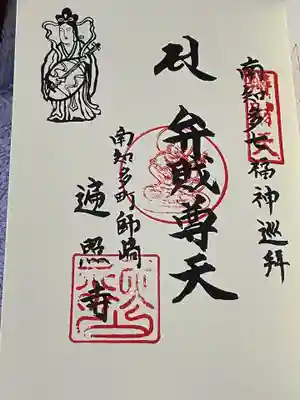 南知多七福神巡拜
弁財尊天
南知多町師崎
遍照寺